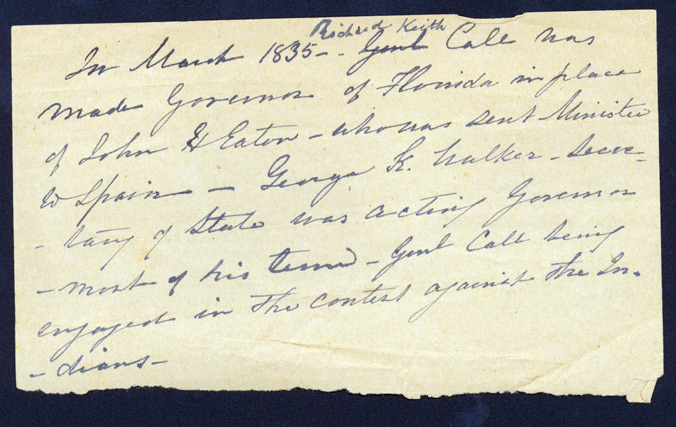 Richard Keith
In March 1835 - Genl Call was
made Governor of Florida in place
of John H Eaton - who was sent Minister
to Spain - George K. Walker - Secre-
- tary of State was acting Governor
- most of his time - Genl Call being
engaged in the contest against the In-
- dians -